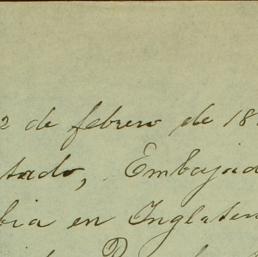 2 de febrero de 18
tado, Embajad
bia en Inglater